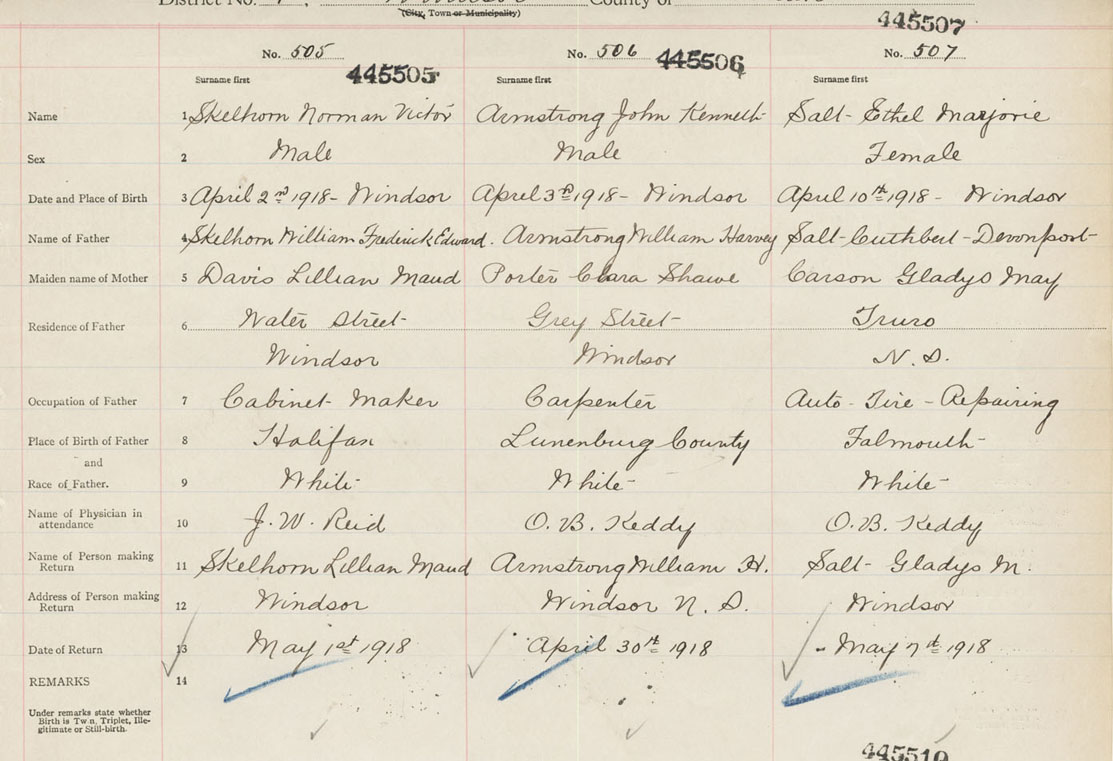 District No. County of
(City, Town or Municipality)
445507
No. 505 No. 506 No. 507
445505 445506
Surname first Surname first Surname first
Name 1 Skelhorn Norman Victor Armstrong John Kenneth Salt- Ethel Marjorie
Sex 2 Male Male Female
Date and Place of Birth 3 April 2nd 1918- Windsor April 3rd 1918- Windsor April 10th 1918- Windsor
Name of Father 4 Skelhorn William Frederick Edward. Armstrong William Harvey Salt-Cuthbert-Devonport-
Maiden name of Mother 5 Davis Lillian Maud Porter Clara Shawe Carson Gladys May
Residence of Father 6 Water Street- Grey Street- Truro
Windsor Windsor N.S.
Occupation of Father 7 Cabinet- Maker Carpenter Auto- Tire- Repairing
Place of Birth of Father 8 Halifax Lunenburg County Falmouth-
and
Race of Father. 9 White- White- White-
Name of Physician in attendance 10 J. W. Reid O. B. Keddy O. B. Keddy
Name of Person making Return 11 Skelhorn Lillian Maud Armstrong William H. Salt- Gladys M.
Address of Person making Return 12 Windsor Windsor N. S. Windsor
Date of Return 13 May 1st 1918 April 30th 1918 - May 7th 1918
REMARKS 14
Under remarks state whether
Birth is Twin, Triplet, Ille-
gitimate or Still-birth.
445510